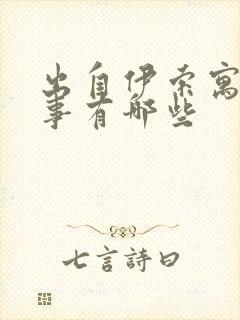 出自伊索寓
事有哪些
七言詩曰